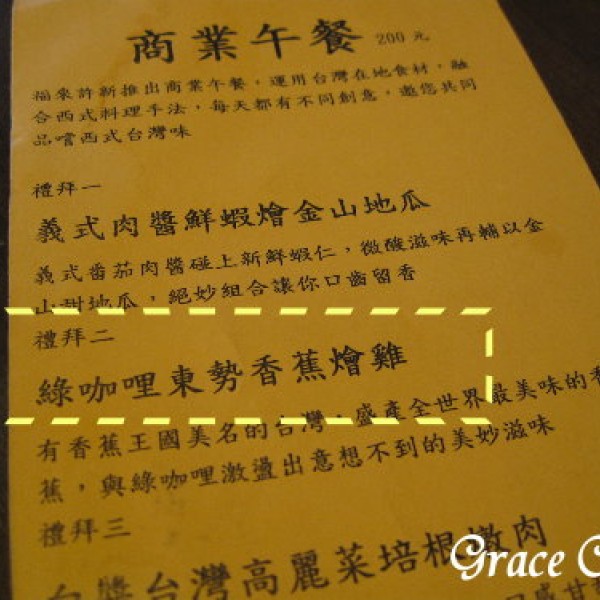 商業午餐 200元
福來許新推出商業午餐，運用台灣在地食材，融
合西式料理手法，每天都有不同創意，邀您共同
品嚐西式台灣味
禮拜一
義式肉醬鮮蝦燴金山地瓜
義式番茄肉醬碰上新鮮蝦仁，微酸滋味再輔以金
山甜地瓜，絕妙組合讓你口齒留香
禮拜二
綠咖哩東勢香蕉燴雞
有香蕉王國美名的台灣，盛產全世界最美味的香
蕉，與綠咖哩激盪出意想不到的美妙滋味
禮拜三
台灣高麗菜培根嫩肉
Grace C